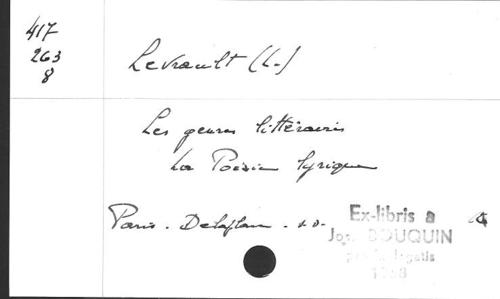 417
263
8
Levrault (L.)
Les genres littéraires
La Poésie lyrique
Paris. Delaplane. s.d.
Ex-libris a
Jos. BOUQUIN
legatis